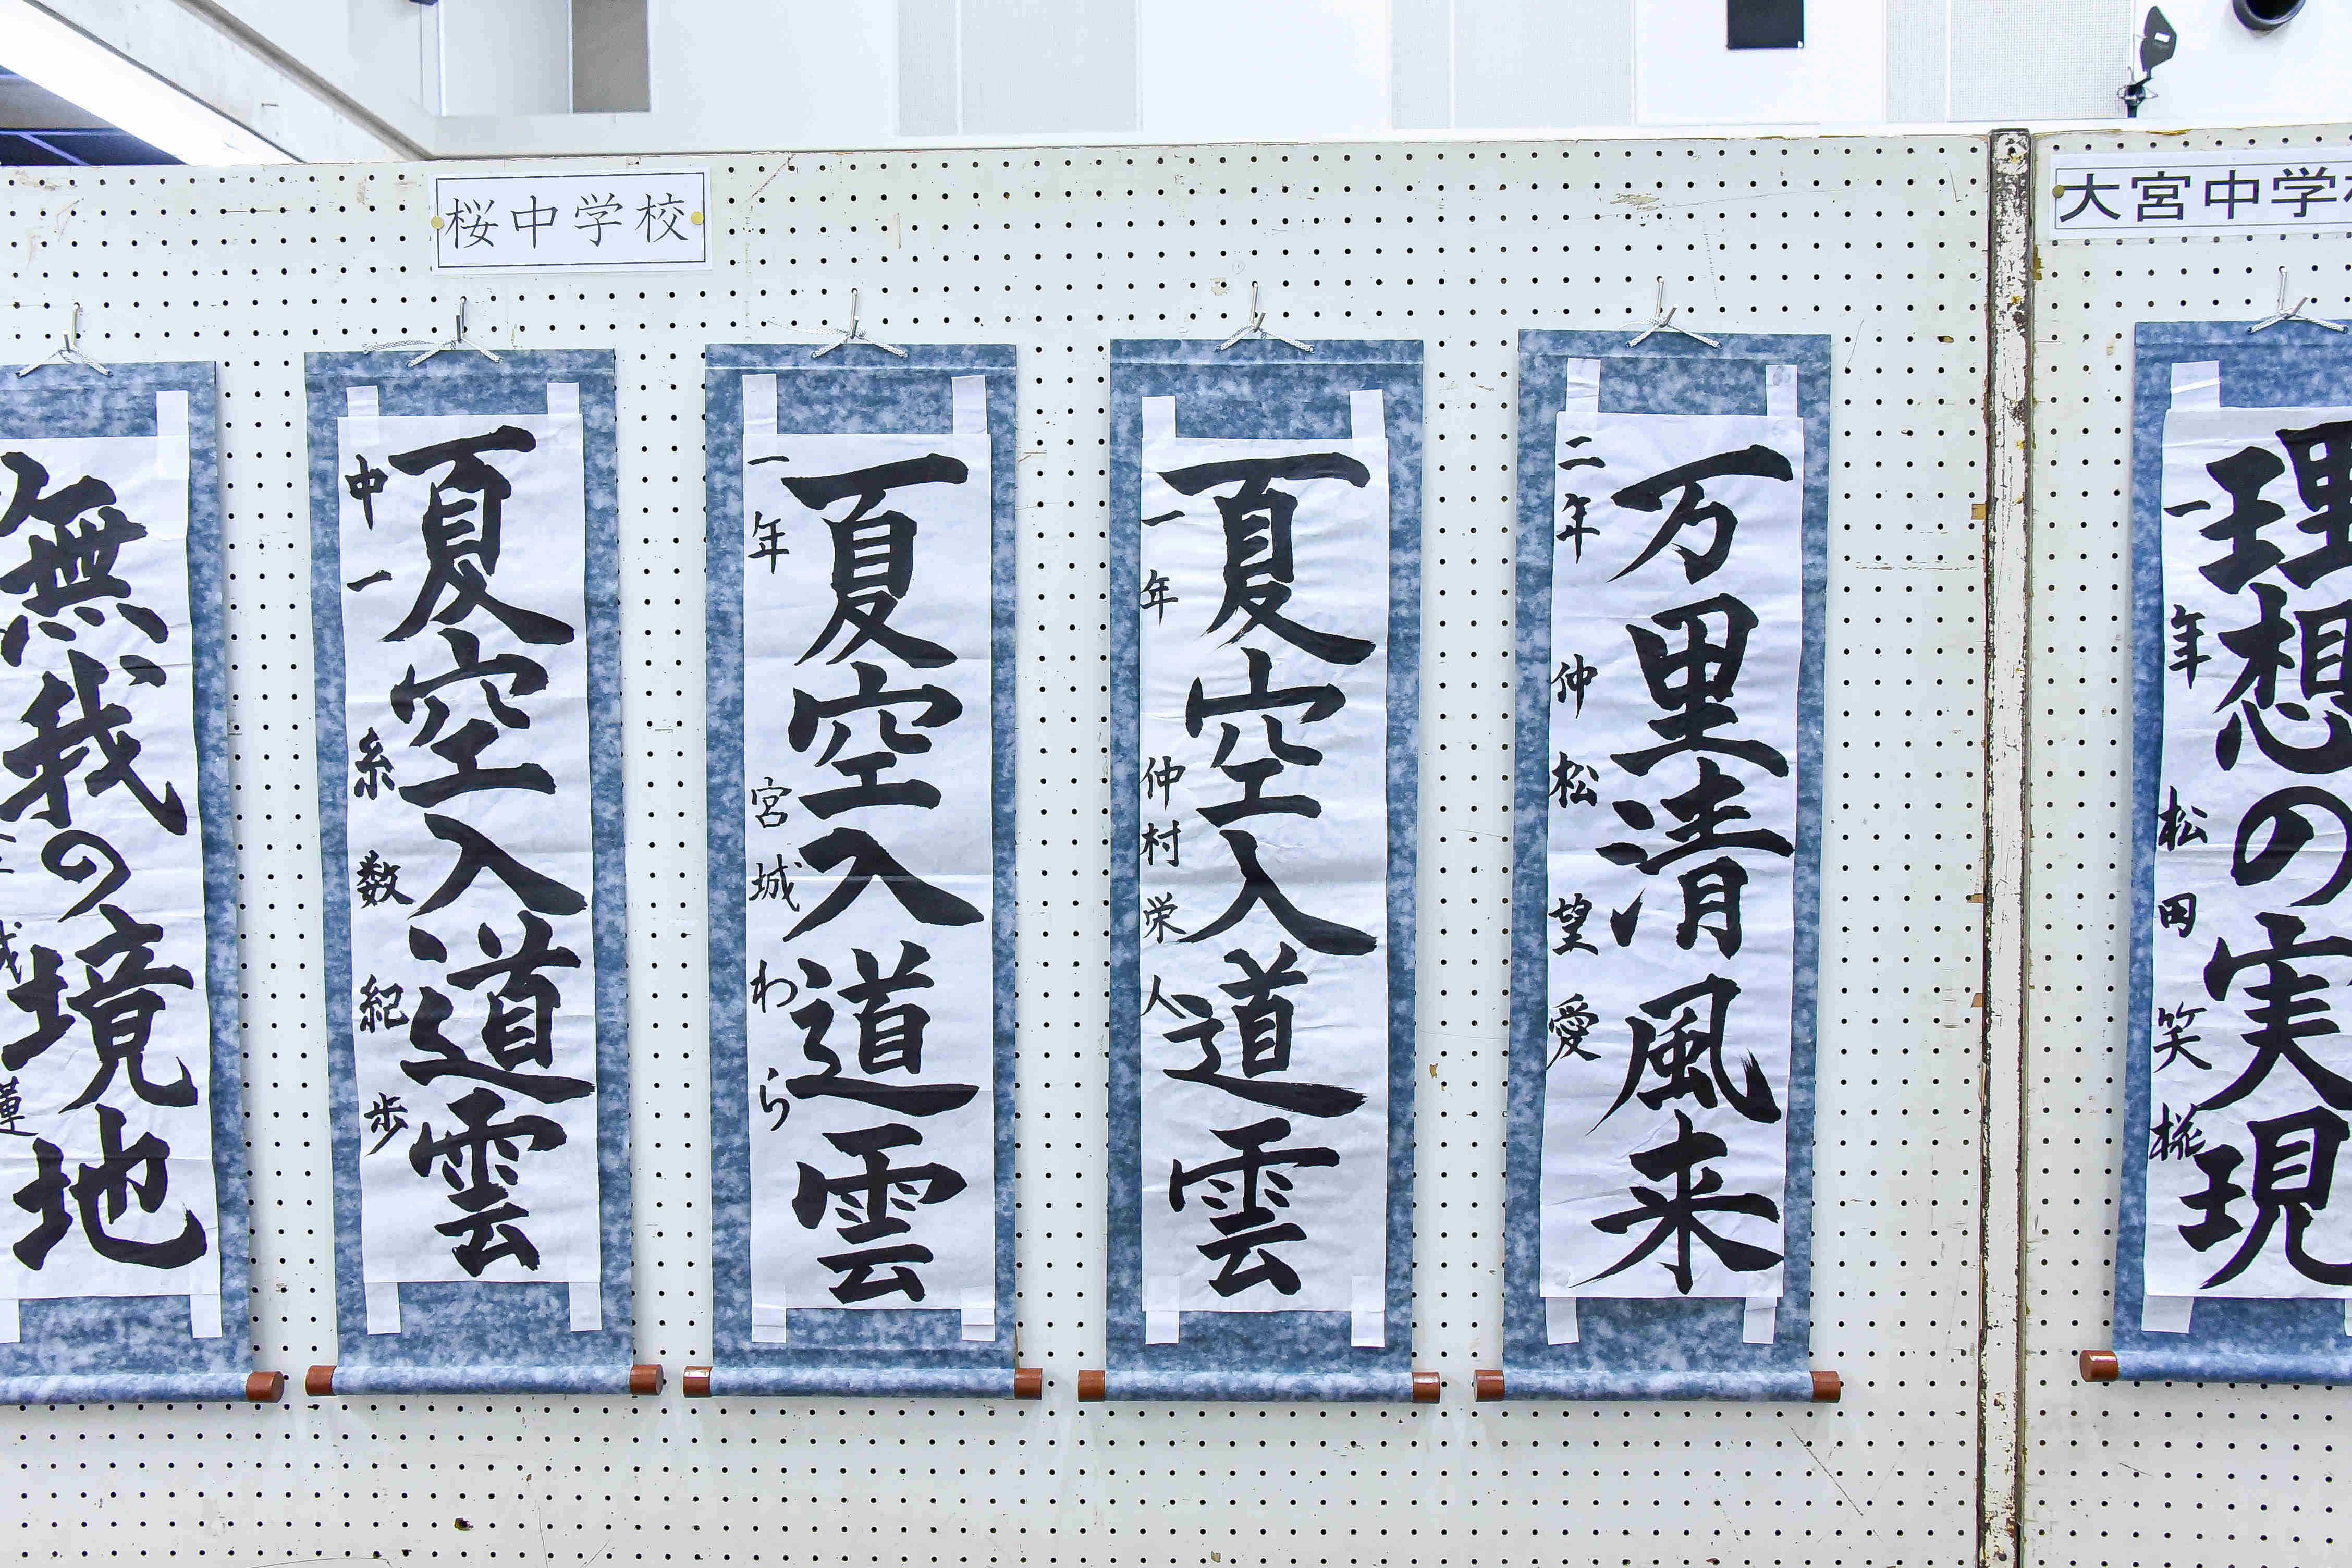 桜中学校
大宮中学校
無我の境地
蓮
夏空入道雲
中一 糸数紀歩
夏空入道雲
一年 宮城わら
夏空入道雲
一年 仲村栄人
万里清風来
二年 仲松望愛
理想の実現
一年 松田笑椛